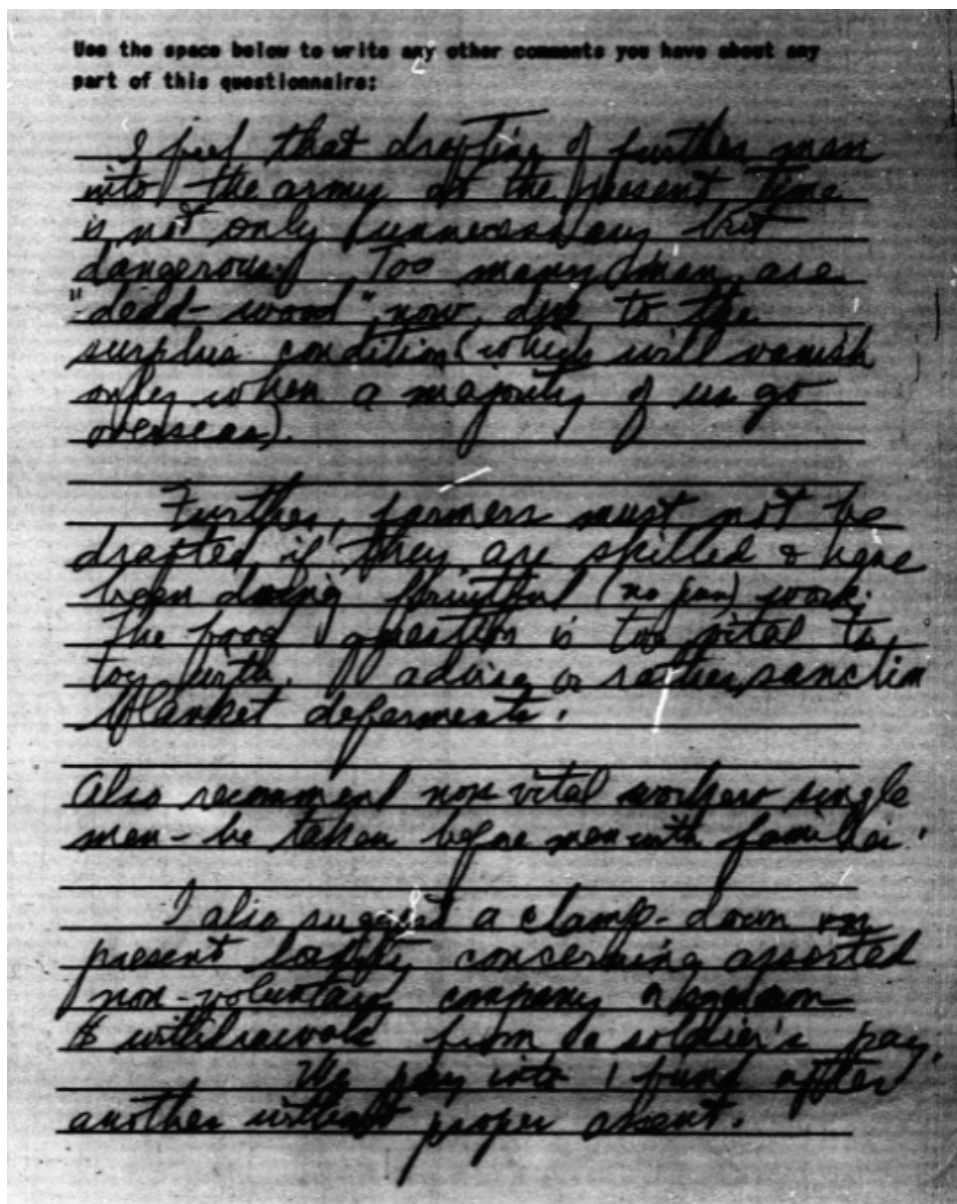 Use the space below to write any other comments you have about any
part of this questionnaire:
I feel that drafting of further men
into the army at the present time
is not only unnecessary but
dangerous. Too many men are
"dead-wood" now, due to the
surplus condition (which will vanish
only when a majority of us go
overseas).
Further, farmers must not be
drafted if they are skilled & have
been doing fruitful (no pun) work.
The food question is too vital to
toy with. I advise or rather sanction
blanket deferments.
Also recommend non vital workers single
men - be taken before men with families.
I also suggest a clamp-down on
present laxity concerning assorted
non-voluntary company or
$ withdrawals from a soldier's pay.
We pay into 1 fund after
another without proper assent.